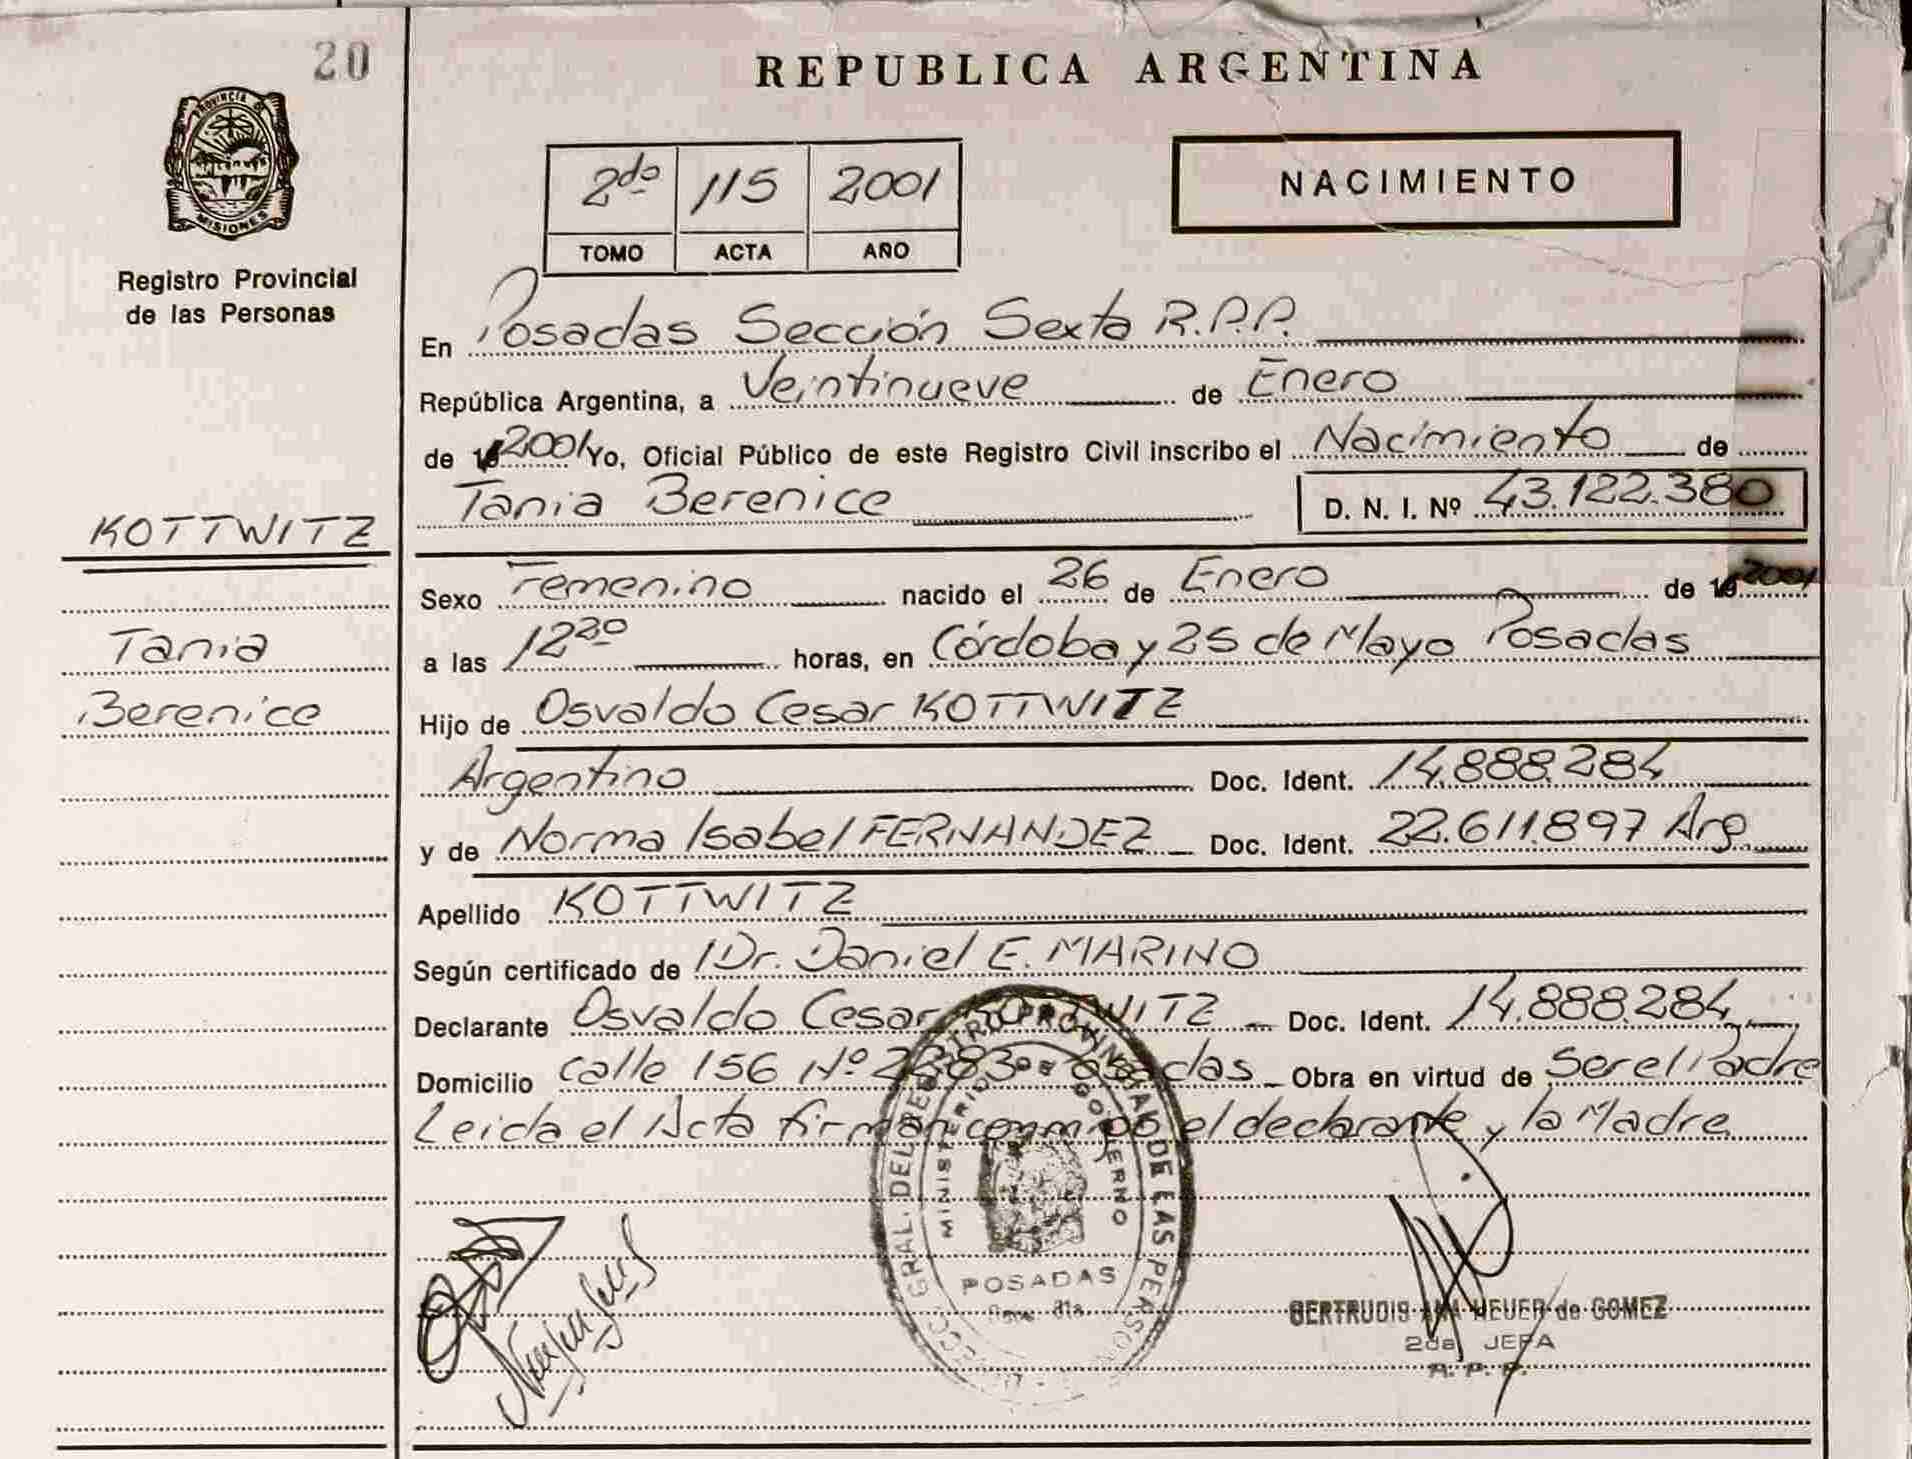 20
REPUBLICA ARGENTINA
PROVINCIA DE MISIONES
Registro Provincial
de las Personas
2do 115 2001
TOMO ACTA AÑO
NACIMIENTO
En Posadas Sección Sexta R.P.P.
República Argentina, a Veintinueve de Enero
de 2001 Yo, Oficial Público de este Registro Civil inscribo el Nacimiento de
Tania Berenice D. N. I. Nº 43.122.380
KOTTWITZ
Tania
Berenice
Sexo Femenino nacido el 26 de Enero de 2001
a las 12 horas, en Córdoba y 25 de Mayo Posadas
Hijo de Osvaldo Cesar KOTTWITZ
Argentino Doc. Ident. 14.888.284
y de Norma Isabel FERNANDEZ Doc. Ident. 22.611.897 Arg.
Apellido KOTTWITZ
Según certificado de Dr. Daniel E. MARINO
Declarante Osvaldo Cesar KOTTWITZ Doc. Ident. 14.888.284
Domicilio calle 156 Nº Posadas Obra en virtud de Ser el Padre
Leida el Acta firman conmigo el declarante y la Madre
GRAL. DEL REGISTRO PROVINCIAL DE LAS PERSON
MINISTERIO DE GOBIERNO
POSADAS
GERTRUDIS ANA HEUER de GOMEZ
2da JEFA
R. P. P.